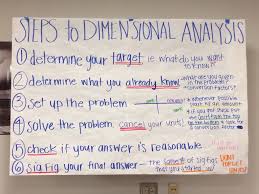 STEPS to DIMENSIONAL ANALYSIS
① determine your target ie what do you want to know?
② determine what you already know - what are you given in the problem? conversion factors?
③ set up the problem
④ solve the problem cancel your units!
⑤ check if your answer is reasonable
⑥ sig fig your final answer - the lowest # of sig figs that you started w/
DON'T FORGET UNITS!